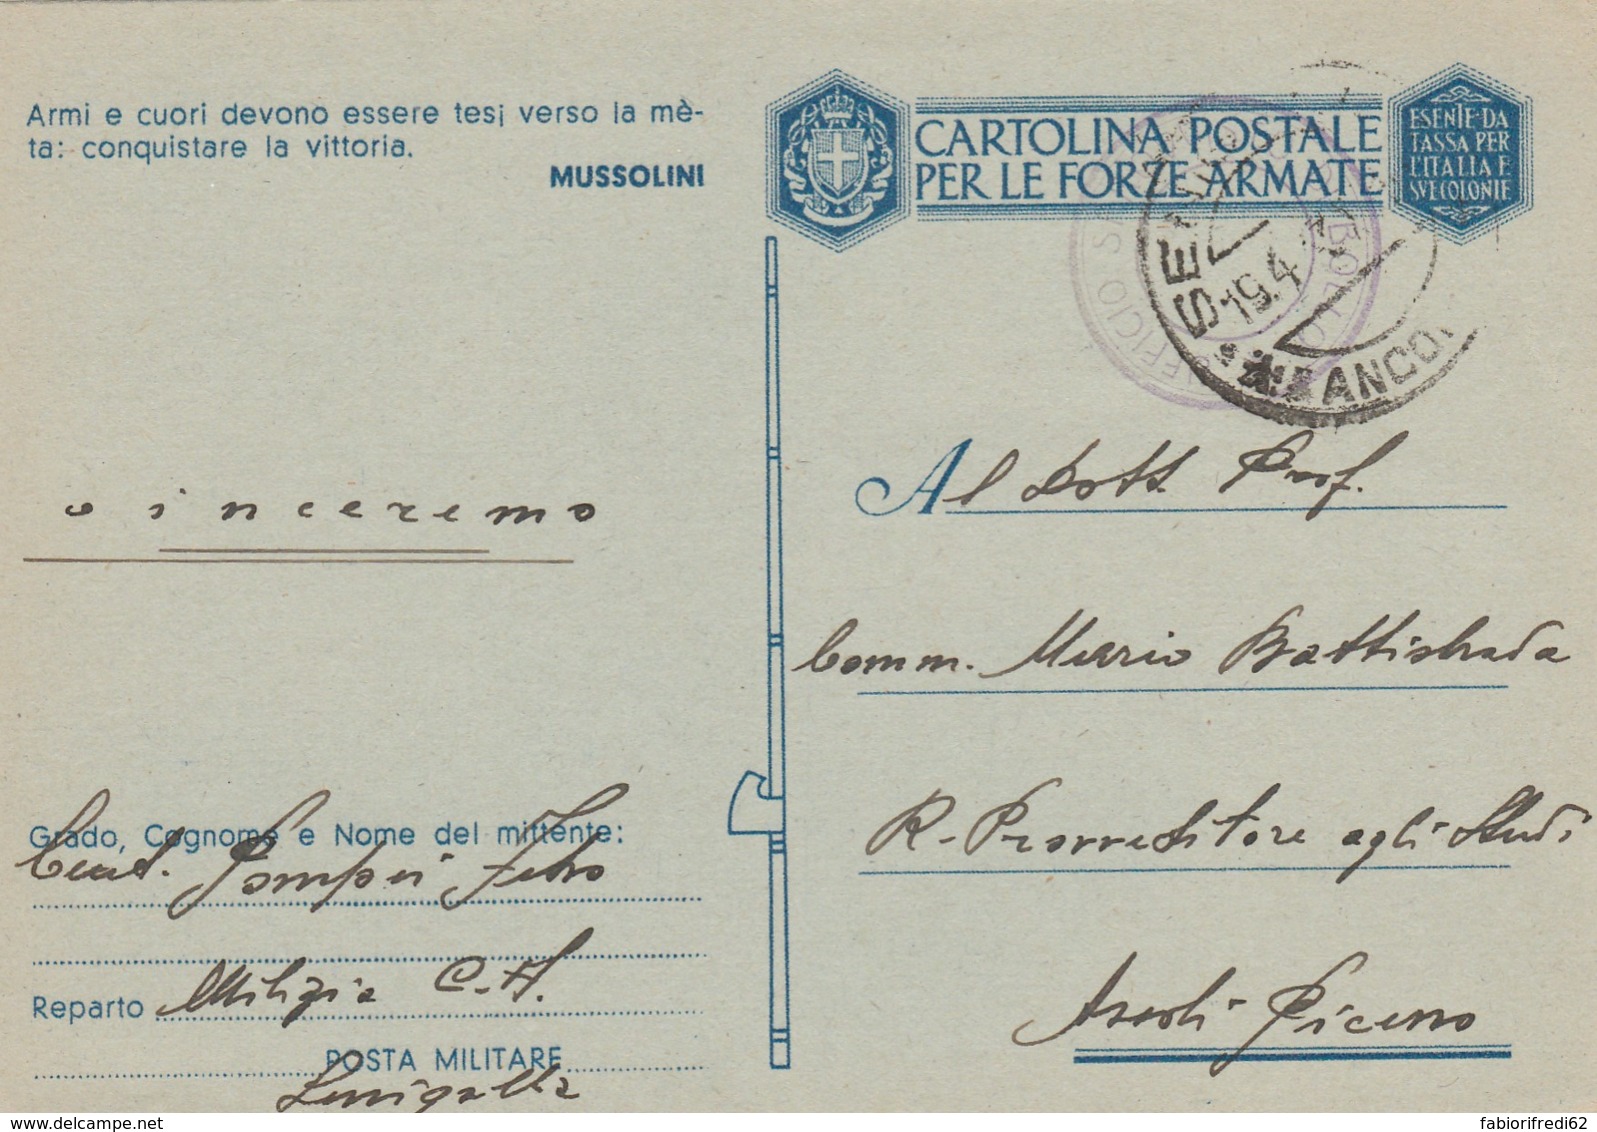 Armi e cuori devono essere tesi verso la mè-
ta: conquistare la vittoria.
MUSSOLINI
CARTOLINA POSTALE
PER LE FORZE ARMATE
ESENTE DA
TASSA PER
L'ITALIA E
SVE COLONIE
19.4
Al Dott. Prof.
vinceremo
Comm. Mario Battistrada
R. Provveditore agli Studi
Ascoli Piceno
Grado, Cognome e Nome del mittente:
Pompei
Reparto Milizia C.A.
POSTA MILITARE
www.delcampe.net
fabiorifredi62